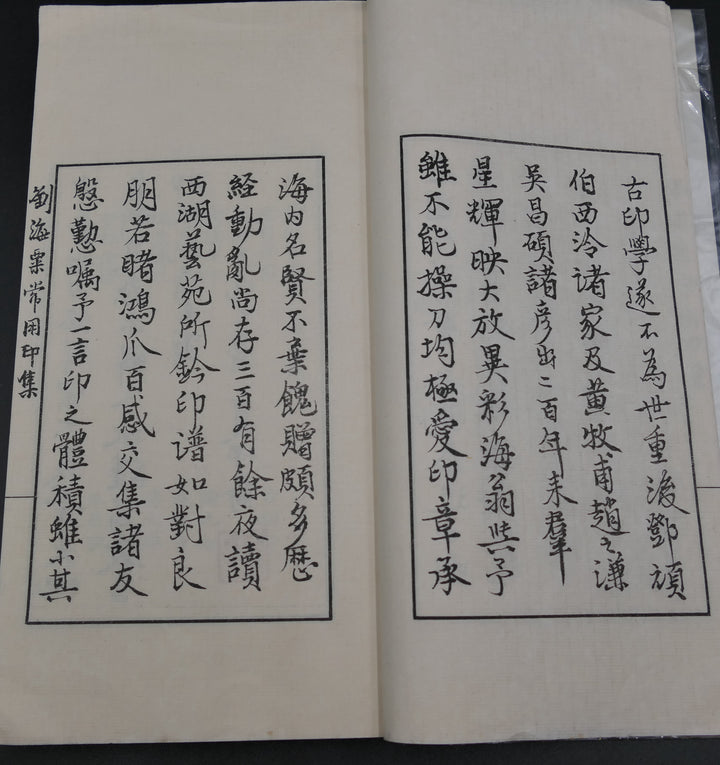 古印學遂不為世重後鄧頑
伯西泠诸家及黃牧甫趙之谦
吳昌碩諸彦出二百年来羣
星輝映大放異彩海翁與予
雖不能操刀均極愛印章承
海内名賢不棄餽贈頗多歷
経動亂尚存三百有餘夜讀
西湖藝苑所鈐印谱如對良
朋若睹鴻爪百感交集諸友
慇懃嘱予一言印之體積雖小其
劉海粟常用印集